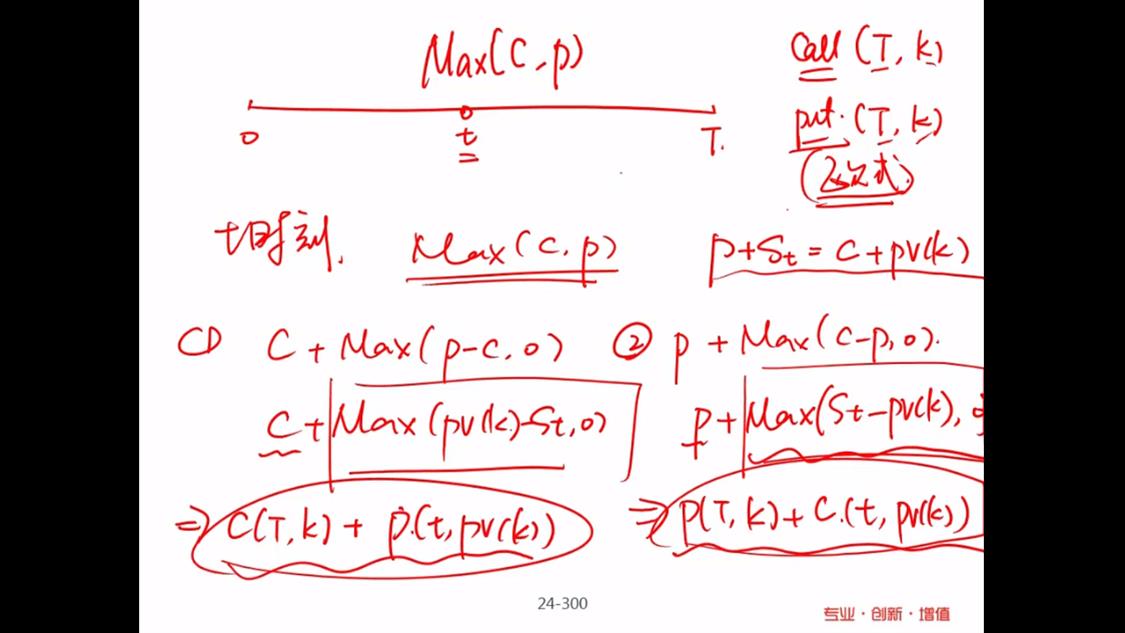 Max(C, p)
0 t T.
Call (T, k)
put. (T, k)
t时刻. Max(C, p) p+St = C+pv(k)
① C + Max(p-C, 0) ② p + Max(C-p, 0).
C+ Max(pv(k)-St, 0) p+ Max(St-pv(k), 0
⇒ C(T, k) + p.(t, pv(k)) ⇒ p(T, k) + C.(t, pv(k))
24-300
专业·创新·增值